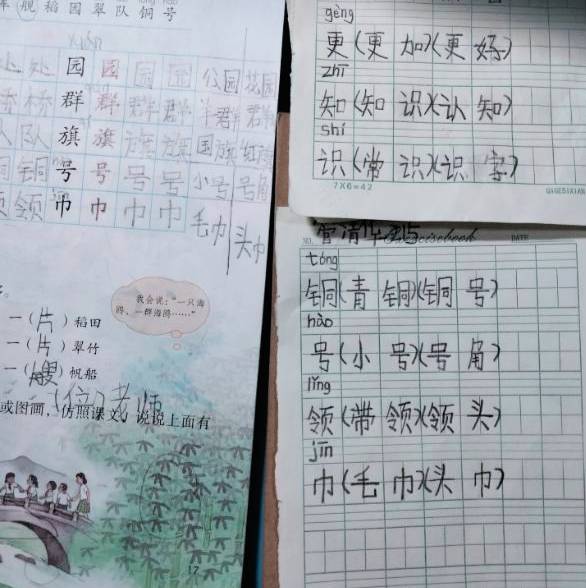 舰 稻 园 翠 队 铜 号
处 处 园 园 园 园 公园 花园
桥 桥 群 群 群 群 羊群
队 队 旗 旗 旗 旗 国旗 红旗
铜 铜 号 号 号 号 小号 号角
领 领 巾 巾 巾 巾 毛巾 头巾
我会说:“一只海
鸥,一群海鸥……”
一(片)稻田
一(片)翠竹
一(艘)帆船
一(位)老师
或图画,仿照课文,说说上面有
17
gèng
更(更 加)(更
zhī
知(知 识)(认 知)
shí
识(常 识)(识 字)
7X6=42
NO. DATE
tóng
铜(青 铜)(铜 号)
hào
号(小 号)(号 角)
lǐng
领(带 领)(领 头)
jīn
巾(毛 巾)(头 巾)